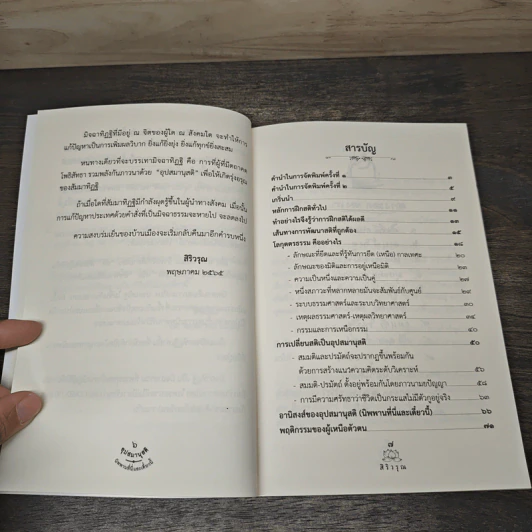 มิจฉาทิฏฐิที่มีอยู่ ณ จิตของผู้ใด ณ สังคมใด จะทำให้การ
แก้ปัญหาเป็นการเพิ่มผลวิบาก ยิ่งแก้ยิ่งยุ่ง ยิ่งแก้ทุกข์ยิ่งสะสม
หนทางเดียวที่จะบรรเทามิจฉาทิฏฐิ คือ การที่ผู้ที่มี
โพธิสัทธา รวมพลังกันภาวนาด้วย "อุปสมานุสติ" เพื่อให้เกิด
ของสัมมาทิฏฐิ
ถ้าเมื่อใดที่สัมมาทิฏฐิมีกำลังผุดรู้ขึ้นในผู้นำทางสังคม เมื่อนั้น
การแก้ปัญหาประเทศด้วยคำสั่งที่เป็นมิจฉาธรรมจะหายไป จะลดลงไป
ความสงบร่มเย็นของบ้านเมืองจะเริ่มกลับคืนมาอีกคำรบหนึ่ง
สิริวรุณ
พฤษภาคม ๒๕๖๕
๖
อุปสมานุสติ
นิพพานที่นี่และเดี๋ยวนี้
สารบัญ
คำนำในการจัดพิมพ์ครั้งที่ ๑ ๓
คำนำในการจัดพิมพ์ครั้งที่ ๒ ๕
เกริ่นนำ ๙
หลักการฝึกสติทั่วไป ๑๑
ทำอย่างไรจึงรู้ว่าการฝึกสติได้ผลดี ๑๑
เส้นทางการพัฒนาสติที่ถูกต้อง ๑๕
โลกุตตรธรรม คืออย่างไร ๑๘
- ลักษณะที่ยึดและที่รู้ทันการยึด (เหนือ) กาลเทศะ ๒๐
- ลักษณะของมิติและการอยู่เหนือมิติ ๒๓
- ความเป็นหนึ่งและความเป็นคู่ ๒๗
- หนึ่งสภาวะที่หลากหลายมันจะสัมพันธ์กับศูนย์ ๒๙
- ระบบธรรมศาสตร์และระบบวิทยาศาสตร์ ๓๐
- เหตุผลธรรมศาสตร์-เหตุผลวิทยาศาสตร์ ๓๔
- กรรมและการเหนือกรรม ๔๐
การเปลี่ยนสติเป็นอุปสมานุสติ ๕๐
- สมมติและปรมัตถ์จะปรากฏขึ้นพร้อมกัน
ด้วยการสร้างแนวความคิดระดับวิเคราะห์ ๕๖
- สมมติ-ปรมัตถ์ ตั้งอยู่พร้อมกันโดยภาวนามยปัญญา ๕๘
- การมีความศรัทธาว่าชีวิตเป็นกระแสไม่มีตัวกูอยู่จริง ๖๓
อานิสงส์ของอุปสมานุสติ (นิพพานที่นี่และเดี๋ยวนี้) ๖๖
พฤติกรรมของผู้เหนือตัวตน ๗๑
๗
สิริวรุณ